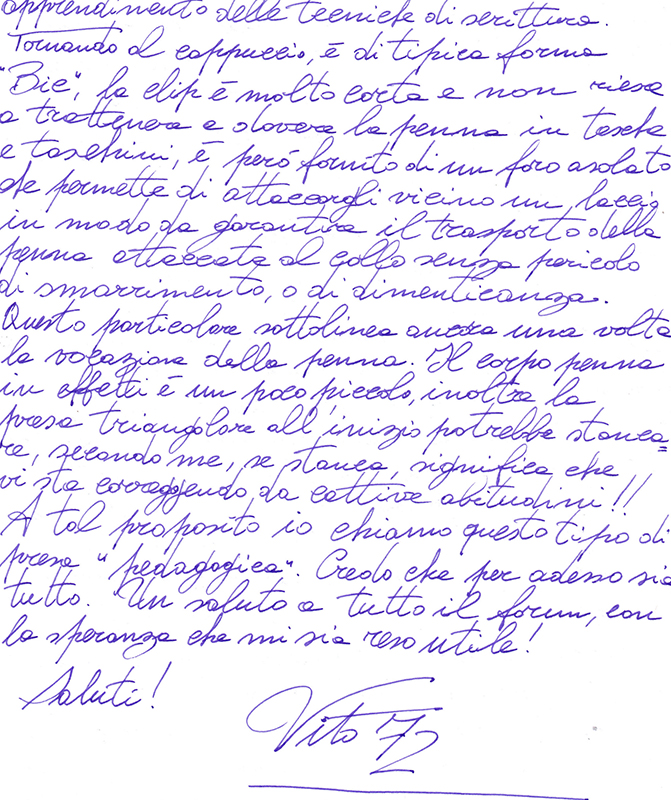 apprendimento delle tecniche di scrittura.
Tornando al cappuccio, è di tipica forma
"Bic", la clip è molto corta e non riesce
a trattenere e dovere la penna in tasche
e taschini, è però fornito di un foro asolato
che permette di attaccargli vicino un laccio
in modo da garantire il trasporto della
penna attaccata al collo senza pericolo
di smarrimento, o di dimenticanza.
Questo particolare sottolinea ancora una volta
la vocazione della penna. Il corpo penna
in effetti è un poco piccolo, inoltre la
presa triangolare all'inizio potrebbe stanca=
re, secondo me, se stanca, significa che
vi sta correggendo da cattive abitudini!!
A tal proposito io chiamo questo tipo di
presa "pedagogica". Credo che per adesso sia
tutto. Un saluto a tutto il forum, con
la speranza che mi sia reso utile!
Saluti!
Vito 72